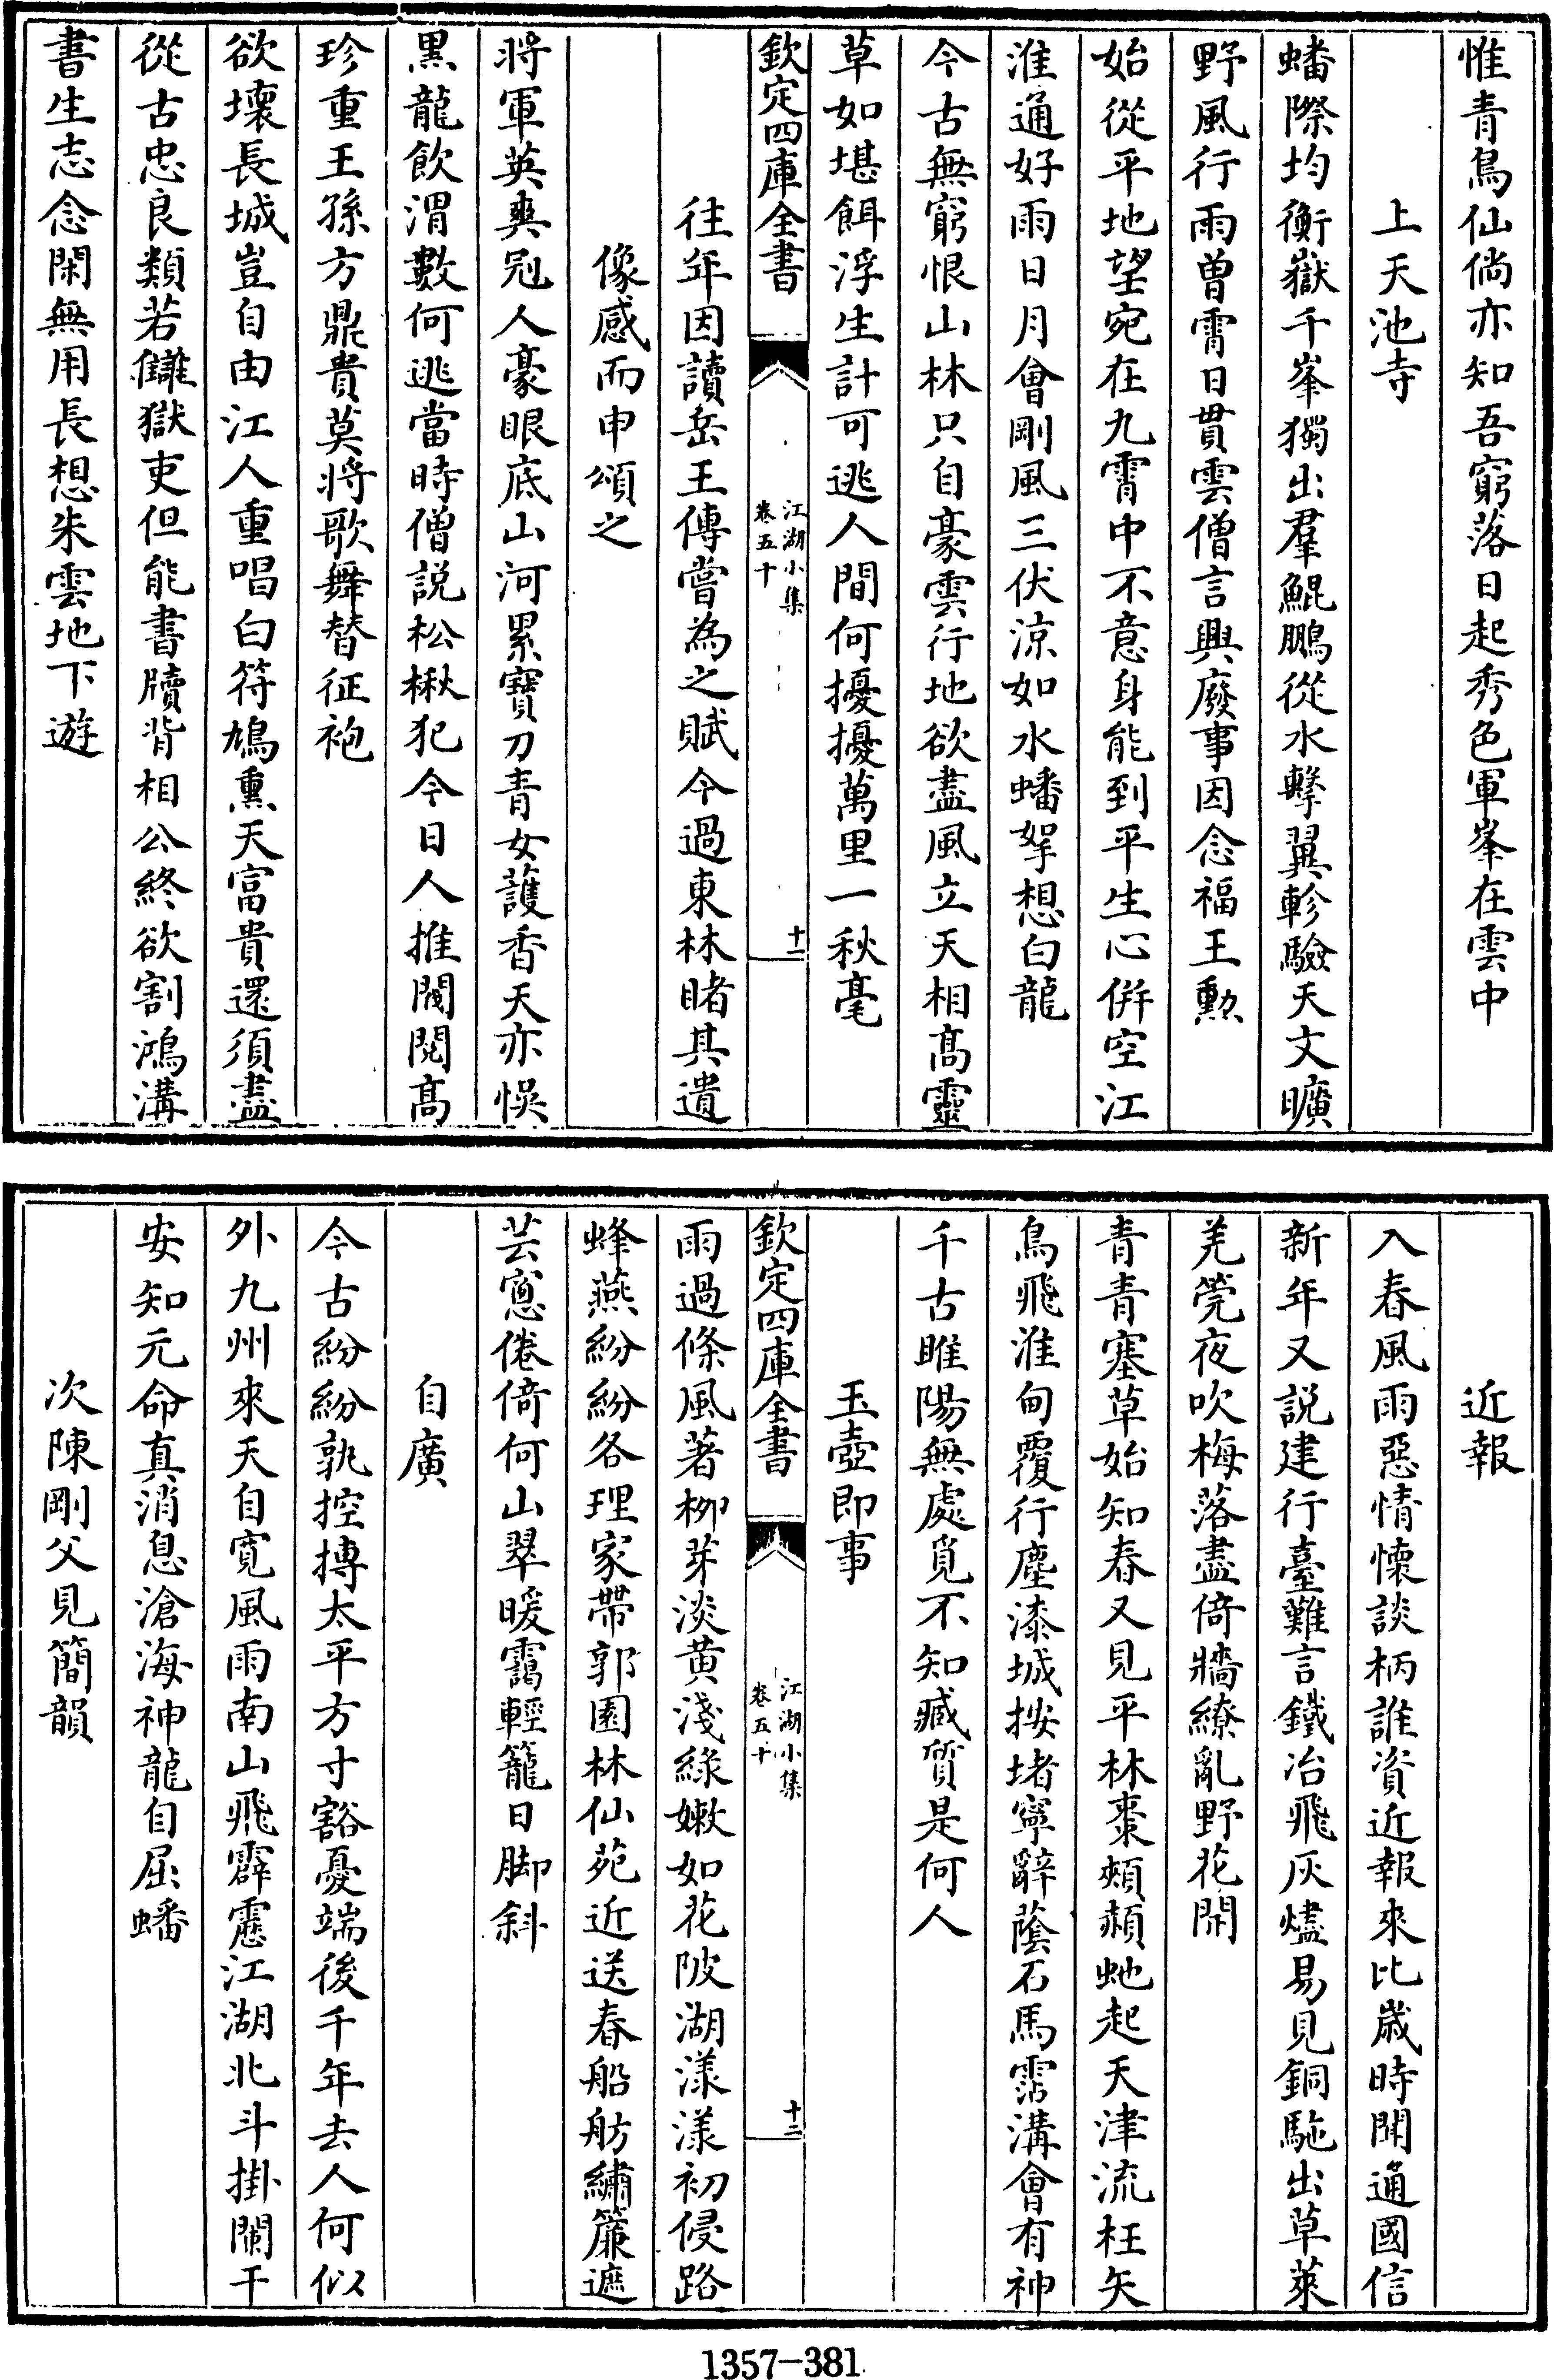 惟青鳥仙倘亦知吾窮落日起秀色軍峯在雲中
上天池寺
蟠際均衡嶽千峯獨出羣鯤鵬從水擊翼軫驗天文曠
野風行雨曾霄日貫雲僧言興廢事因念福王勲
始從平地望宛在九霄中不意身能到平生心併空江
淮通好雨日月會剛風三伏涼如水蟠拏想白龍
今古無窮恨山林只自豪雲行地欲盡風立天相髙靈
草如堪餌浮生計可逃人間何擾擾萬里一秋毫
欽定四庫全書
江湖小集
卷五十
十一
往年因讀岳王傳嘗為之賦今過東林睹其遺
像感而申頌之
將軍英爽冠人豪眼底山河累寶刀青女護香天亦悞
黒龍飲渭數何逃當時僧説松楸犯今日人推閥閱髙
珍重王孫方鼎貴莫將歌舞替征袍
欲壞長城豈自由江人重唱白符鳩熏天富貴還須盡
從古忠良類若讎獄吏但能書牘背相公終欲割鴻溝
書生志念閑無用長想朱雲地下遊
近報
入春風雨惡情懷談柄誰資近報來比歲時聞通國信
新年又説建行臺難言鐵冶飛灰燼易見銅駞出草萊
羌筦夜吹梅落盡倚牆繚亂野花開
青青塞草始知春又見平林棗頰頳虵起天津流枉矢
鳥飛淮甸覆行塵漆城按堵寧辭蔭石馬霑溝會有神
千古睢陽無處覓不知臧質是何人
玉壺即事
欽定四庫全書
江湖小集
卷五十
十二
雨過條風著柳芽淡黄淺綠嫩如花陂湖漾漾初侵路
蜂燕紛紛各理家帶郭園林仙苑近送春船舫繡簾遮
芸窻倦倚何山翠暖靄輕籠日脚斜
自廣
今古紛紛孰控摶太平方寸豁憂端後千年去人何似
外九州來天自寛風雨南山飛霹靂江湖北斗掛闌干
安知元命真消息滄海神龍自屈蟠
次陳剛父見簡韻
1357-381